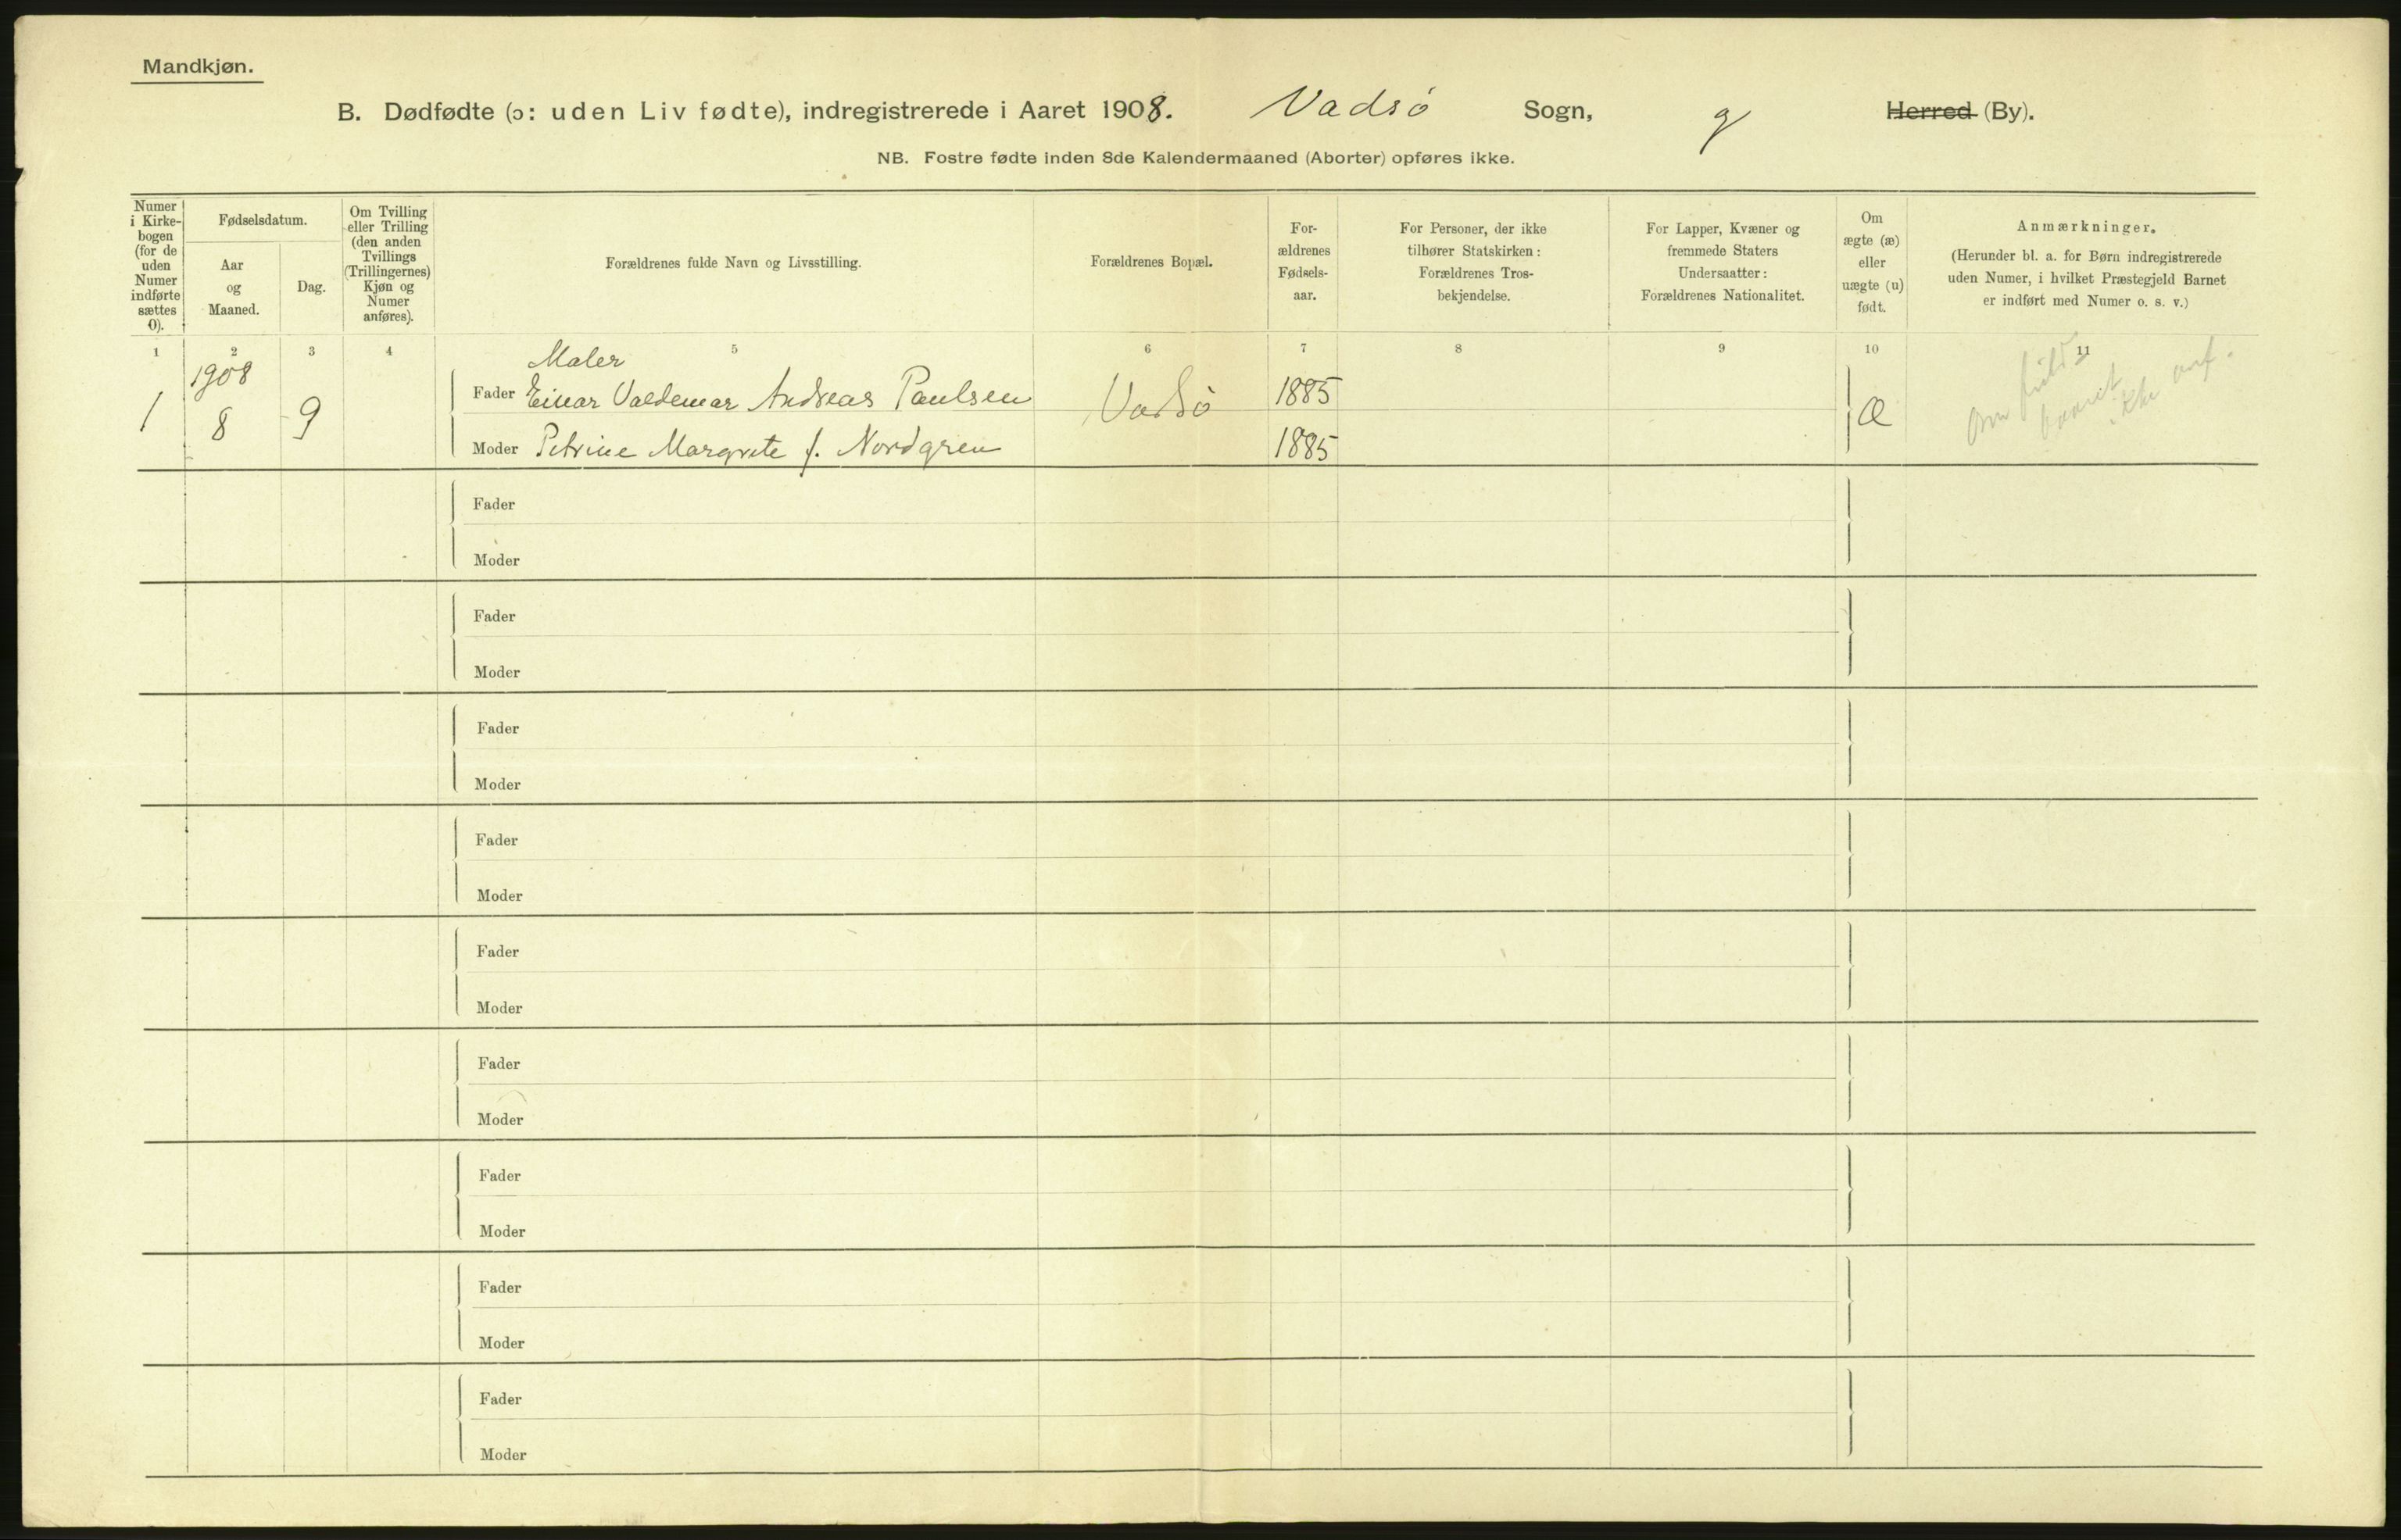 Mandkjøn.
B. Dødfødte (ɔ: uden Liv fødte), indregistrerede i Aaret 1908. Vadsø Sogn, Herred (By).
NB. Fostre fødte inden 8de Kalendermaaned (Aborter) opføres ikke.
Numer i Kirke-bogen (for de uden Numer indførte sættes 0).
Fødselsdatum.
Aar og Maaned.
Dag.
Om Tvilling eller Trilling (den anden Tvillings (Trillingernes) Kjøn og Numer anføres).
Forældrenes fulde Navn og Livsstilling.
Forældrenes Bopæl.
For-ældrenes Fødsels-aar.
For Personer, der ikke tilhører Statskirken: Forældrenes Tros-bekjendelse.
For Lapper, Kvæner og fremmede Staters Undersaatter: Forældrenes Nationalitet.
Om ægte (æ) eller uægte (u) født.
Anmærkninger.
(Herunder bl. a. for Børn indregistrerede uden Numer, i hvilket Præstegjeld Barnet er indført med Numer o. s. v.)
1 2 3 4 5 6 7 8 9 10 11
1908 Maler
1 8 9 Fader Einar Valdemar Andreas Paulsen Vadsø 1885 æ
Moder Petrine Margrete f. Nordgren 1885
Om fuldb
baaret
ikke anf.
Fader
Moder
Fader
Moder
Fader
Moder
Fader
Moder
Fader
Moder
Fader
Moder
Fader
Moder
Fader
Moder
Fader
Moder